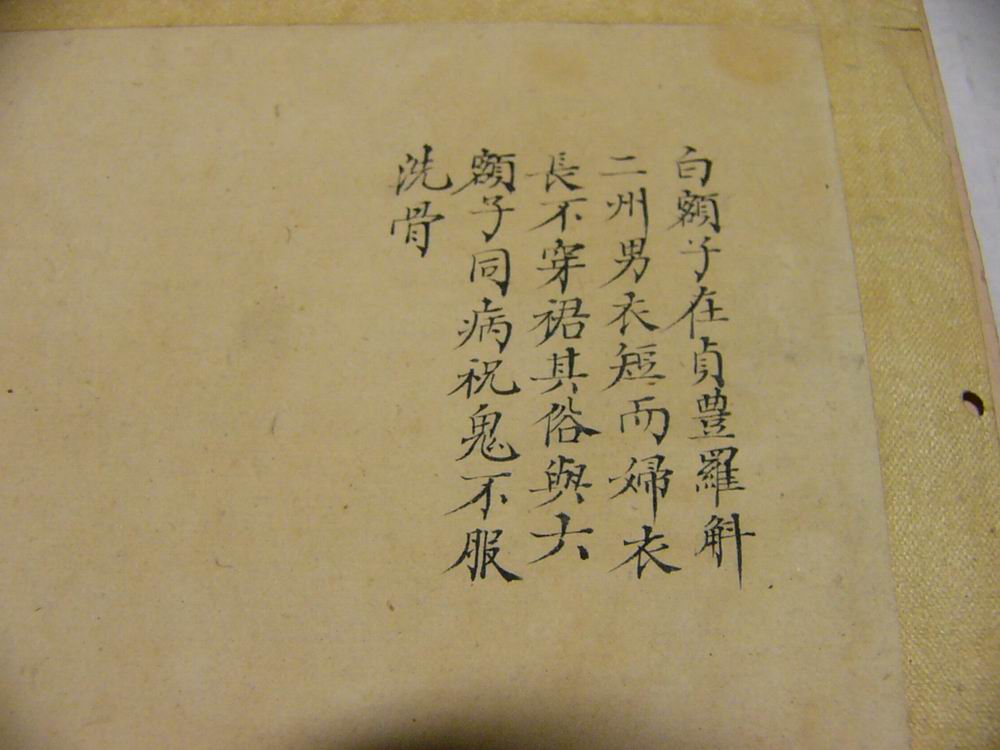 白額子在貞豊羅斛
二州男衣短而婦衣
長不穿裙其俗與大
額子同病祝鬼不服
洗骨